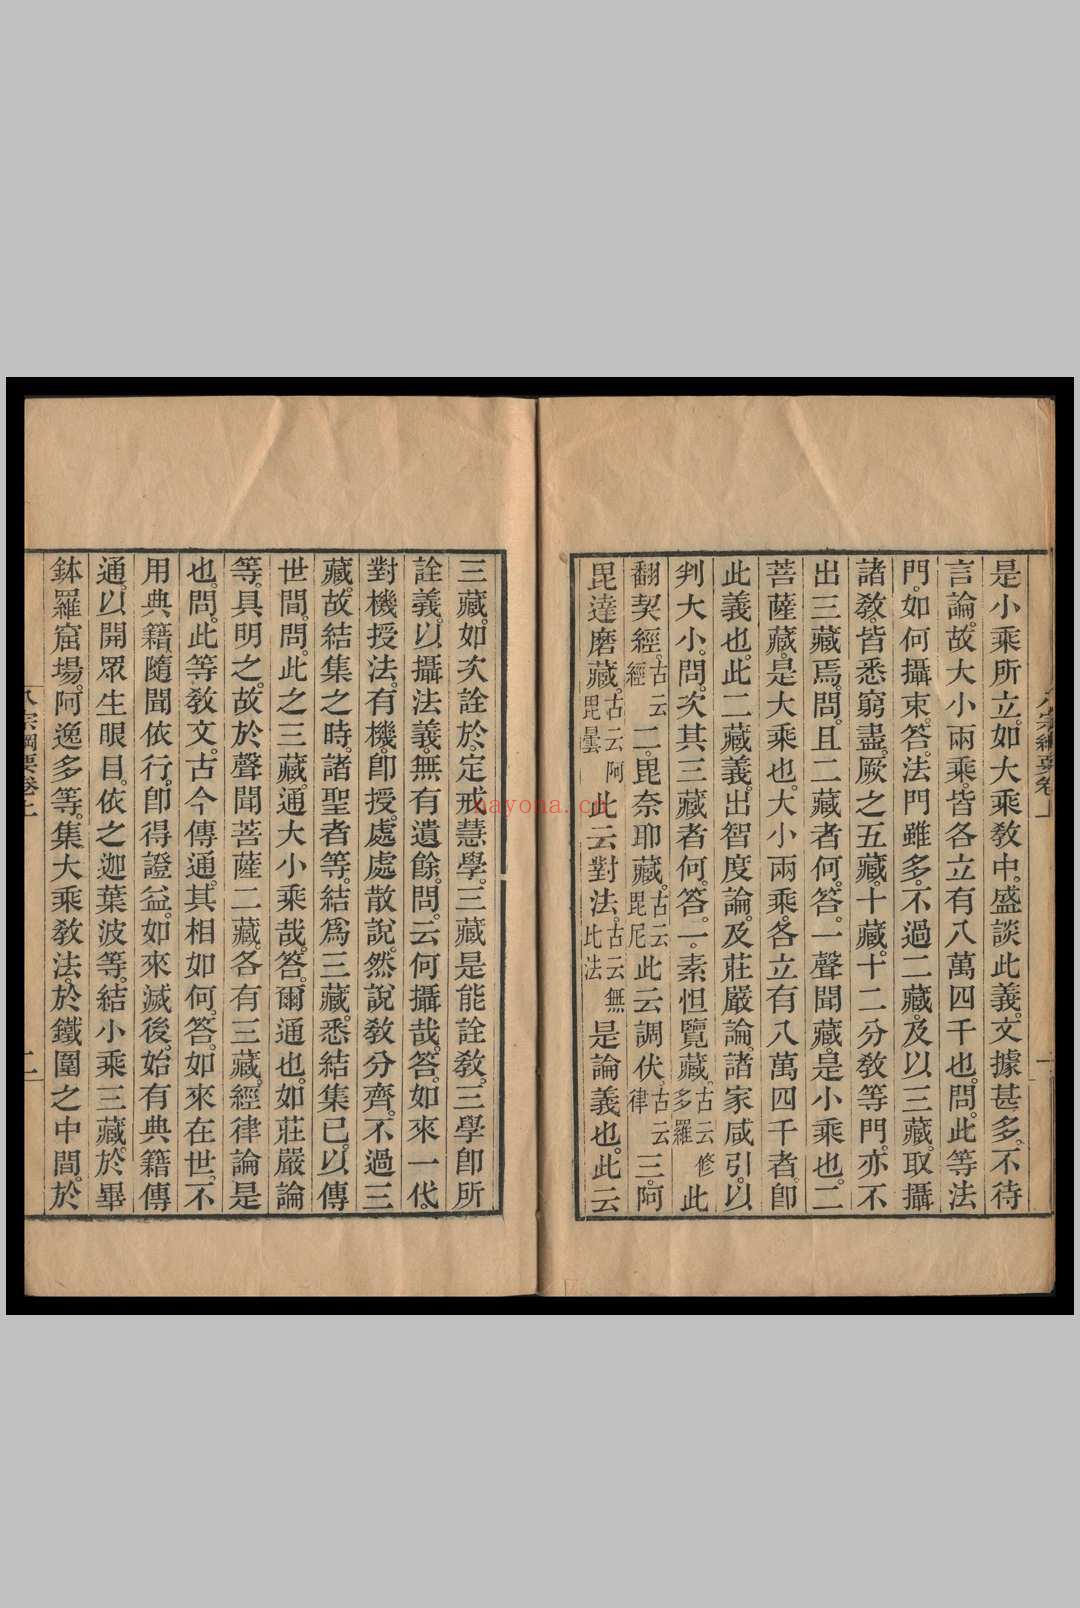 是小乘所立。如大乘敎中。盛談此義。文據甚多。不待
言論。故大小兩乘。皆各立有八萬四千也。問。此等法
門。如何攝束。答。法門雖多。不過二藏。及以三藏。取攝
諸敎。皆悉窮盡。厥之五藏。十藏。十二分敎等門。亦不
出三藏焉。問。且二藏者何。答。一聲聞藏。是小乘也。二
菩薩藏。是大乘也。大小兩乘。各立有八萬四千者。卽
此義也。此二藏義。出智度論。及莊嚴論。諸家咸引。以
判大小。問。次其三藏者何。答。一。素怛覽藏。古云修多羅此
翻契經。古云經二。毘奈耶藏。古云毘尼此云調伏。古云律三。阿
毘達磨藏。古云阿毘曇此云對法。古云無比法是論義也。此云
三藏。如次詮於。定戒慧學。三藏是能詮敎。三學卽所
詮義。以攝法義。無有遺餘。問。云何攝哉。答。如來一代。
對機授法。有機。卽授。處處散說。然說敎分齊。不過三
藏。故結集之時。諸聖者等。結爲三藏。悉結集已。以傳
世間。問。此之三藏。通大小乘哉。答。爾通也。如莊嚴論
等。具明之。故於聲聞菩薩二藏。各有三藏。經律論是
也。問。此等敎文。古今傳通。其相如何。答。如來在世。不
用典籍。隨聞依行。卽得證益。如來滅後。始有典籍傳
通。以開眾生眼目。依之迦葉波等。結小乘三藏。於畢
鉢羅窟場。阿逸多等。集大乘敎法。於鐵圍之中間。於
八宗綱要卷上
二
nayona.cn